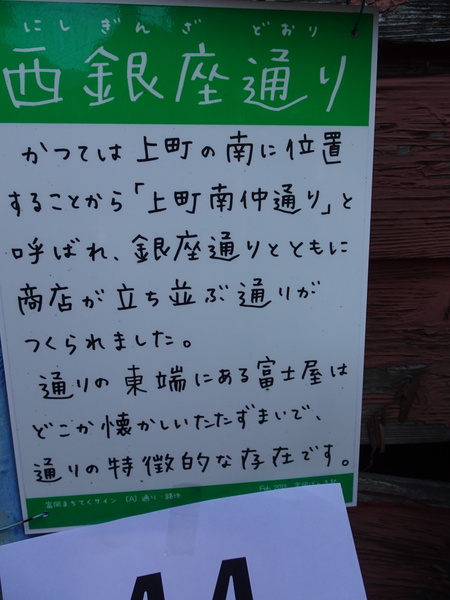 にしぎんざ どおり
西銀座通り
かつては上町の南に位置
することから「上町南仲通り」と
呼ばれ、銀座通りとともに
商店が立ち並ぶ通りが
つくられました。
通りの東端にある富士屋は
どこか懐かしいたたずまいで、
通りの特徴的な存在です。
富岡まちてくサイン [A] 通り・路地